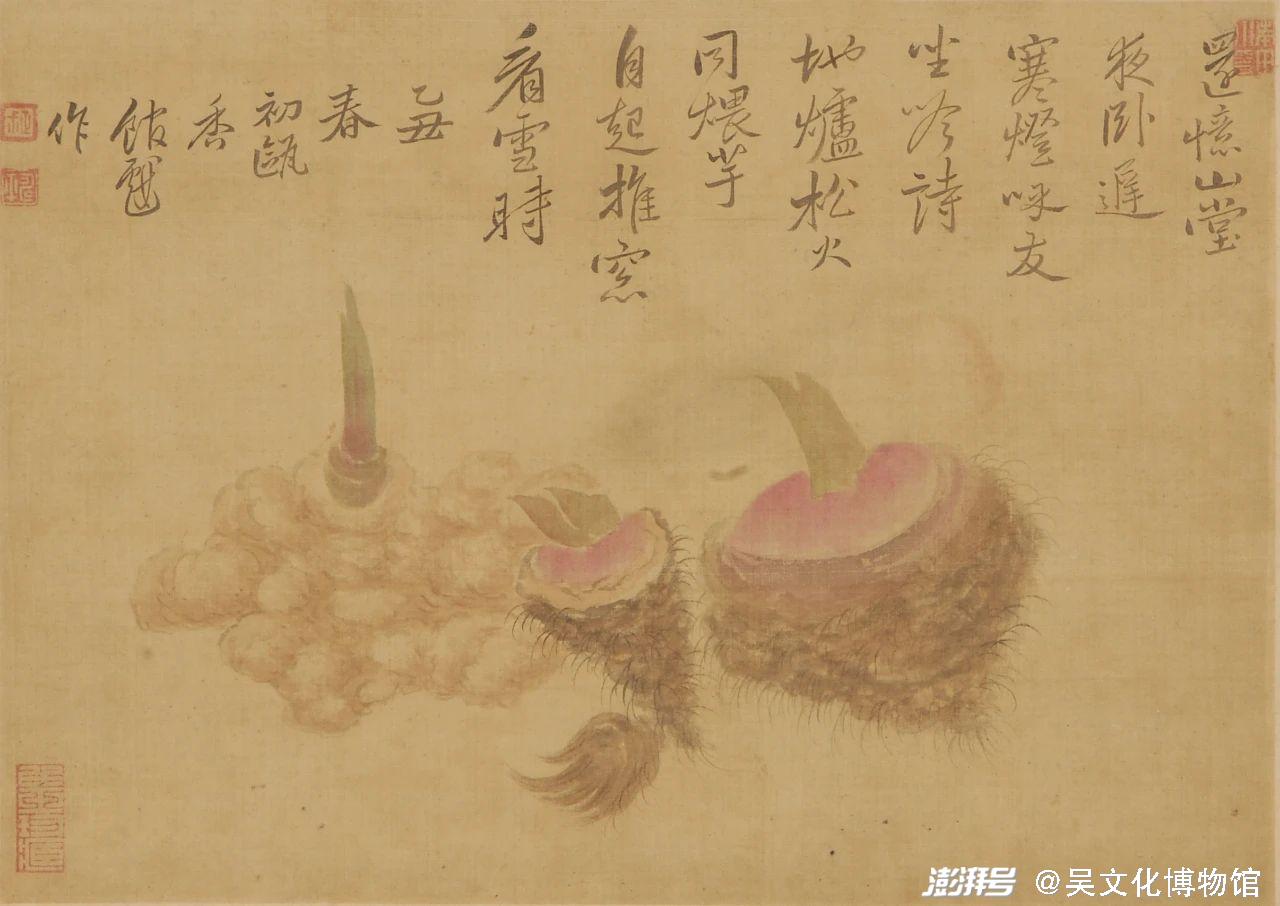 還憶山堂
夜卧遲
寒燈咏友
坐吟詩
地爐松火
同煨芋
自起推窓
看雪時
乙丑
春
初甌
香
館戲
作
澎湃号 @吴文化博物馆